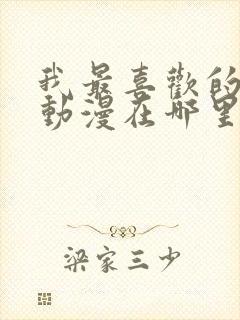 我最喜歡的
動漫在哪里
梁家三少